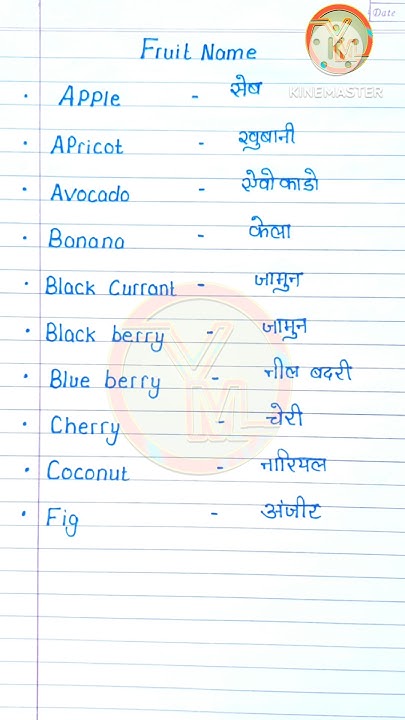 Date
Fruit Name
KINEMASTER
• Apple - सेब
• Apricot - खुबानी
• Avocado - ऐवोकाडो
• Banana - केला
• Black Currant - जामुन
• Black berry - जामुन
• Blue berry - नील बदरी
• Cherry - चेरी
• Coconut - नारियल
• Fig - अंजीर
YM